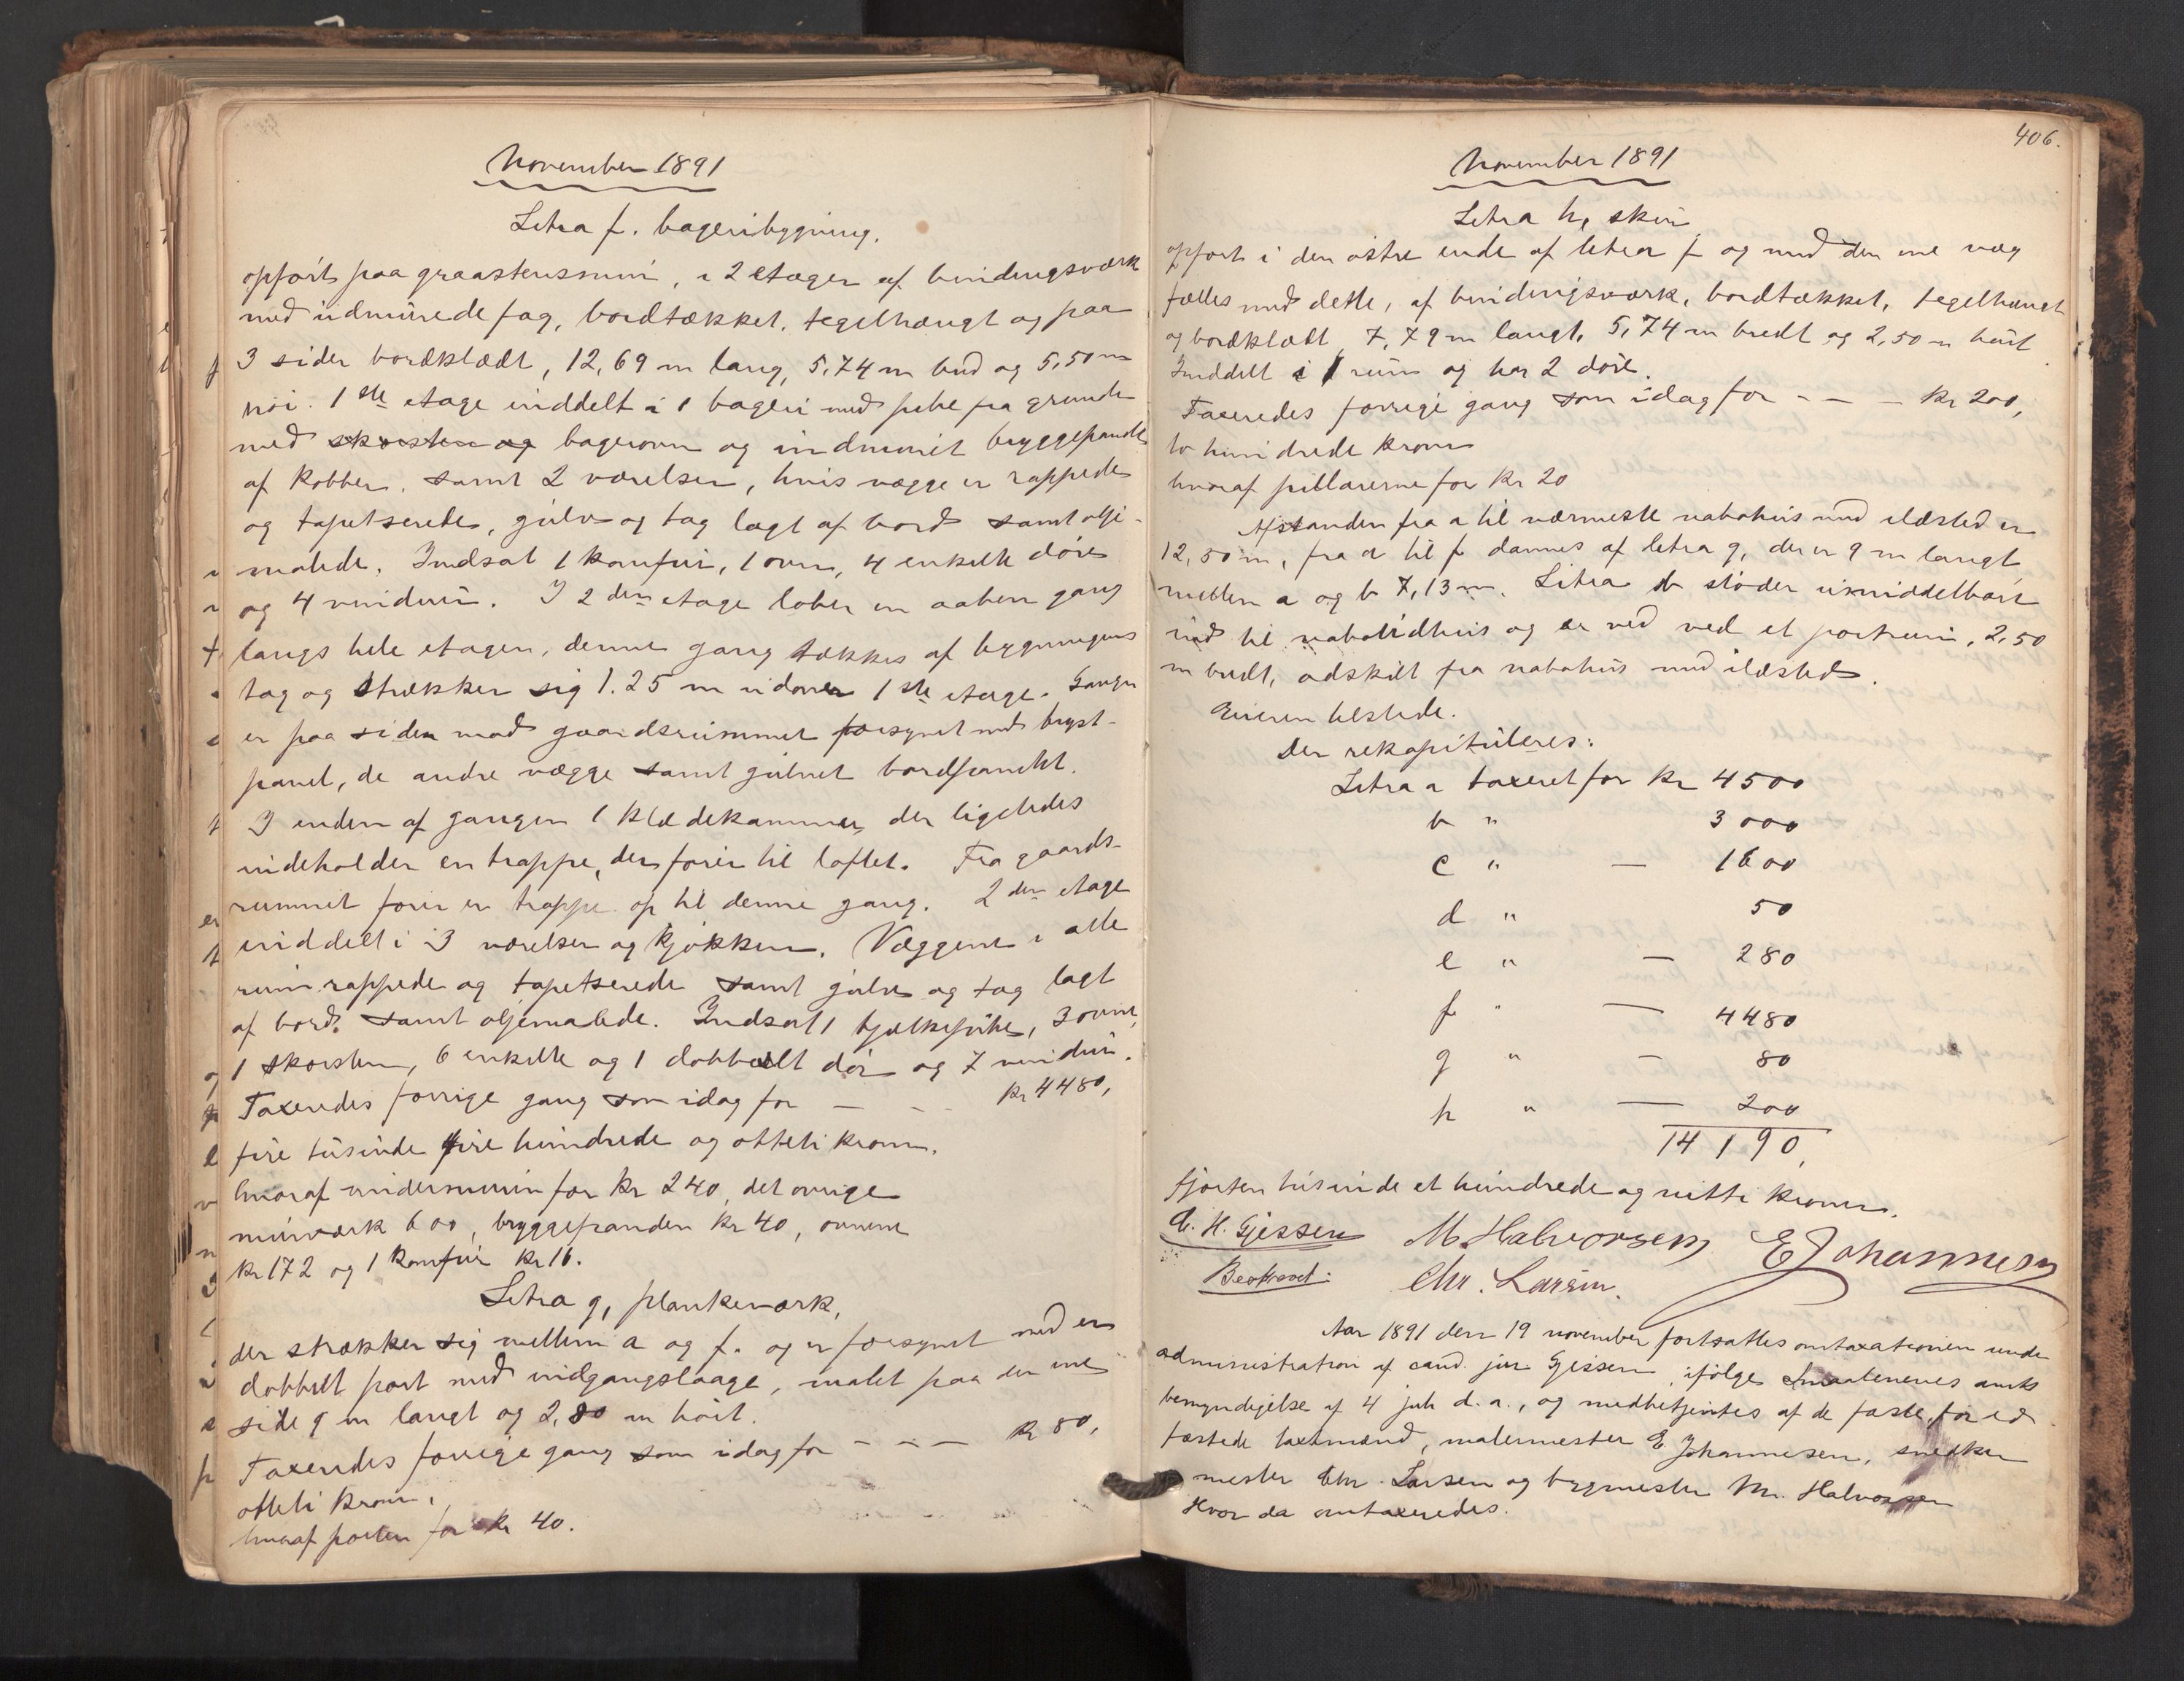 November 1891
Litra f. bageribygning.
opført paa graastensmur, i 2 etager af bindingsværk
med udmurede fag, bordtækket, tegelhængt og paa
3 sider bordklædt, 12,69 m lang, 5,74 m bred og 5,50 m
høi. 1ste etage inddelt i 1 bageri med pibe fra grunden
med skorsten og bagerovn og indmuret bryggepande
af kobber, samt 2 værelser, hvis vægge er rappede
og tapetserede, gulv og tag lagt af bord samt olje-
malede. Indsat 1 komfur, 1 ovn, 4 enkelte døre
og 4 vinduer. I 2den etage løber en aaben gang
langs hele etagen, denne gang tækkes af bygningens
tag og strækker sig 1.25 m udover 1ste etage. Gangen
er paa siden mod gaardsrummet forsynet med bryst-
panel, de andre vægge samt gulvet bordpanelt.
I enden af gangen 1 klædekammer, der ligeledes
indeholder en trappe, der fører til loftet. Fra gaards-
rummet fører en trappe op til denne gang. 2den etage
inddelt i 3 værelser og kjøkken. Væggene i alle
rum rappede og tapetserede samt gulv og tag lagt
af bord, samt oljemalede. Indsat 1 bjelkepibe, 3 ovne,
1 skorsten, 6 enkelte og 1 dobbelt dør og 7 vinduer.
Taxeredes forrige gang som idag for — - - kr 4480,
fire tusinde fire hundrede og otteti kroner.
hvoraf undermuren for kr 240, det øvrige
murværk 600, bryggepanden kr 40, ovnene
kr 172 og 1 komfur kr 16.
Litra g, plankeværk,
der strækker sig mellem a og f. og er forsynet med en
dobbelt port med indgangslaage, malet paa den ene
side 9 m langt og 2,80 m høit.
Taxeredes forrige gang som idag for - - — kr 80,
otteti kroner,
hvoraf porten for kr 40.
406.
November 1891
Litra h, skur
opført i den østre ende af litra f og med den ene væg
fælles med dette, af bindingsværk, bordtækket, tegelhængt
og bordklædt 7,79 m langt, 5,74 m bredt og 2,50 m høit
Inddelt i 1 rum og har 2 døre.
Taxeredes forrige gang som idag for - — — kr 200,
to hundrede kroner
hvoraf pillarerne for kr 20
Afstanden fra a til nærmeste nabohus med ildsted er
12,50 m, fra a til f dannes af litra g, der er 9 m langt,
mellem a og b 7,13 m. Litra b støder umiddelbart
ind til nabouthus og er ved et portrum, 2,50
m bredt, adskilt fra nabohus med ildsted.
Eieren tilstede.
Der rekapituleres:
Litra a taxeret for kr 4500
b " 3000
c " — 1600
d " 50
e " — 280
f " — 4480
g " — 80
h " — 200
14190,
fjorten tusinde et hundrede og nitti kroner.
A. H. Gjessen M. Halvorsen E Johannesen
Beskvad: Chr. Larsen.
Aar 1891 den 19 november fortsattes omtaxationen under
administration af cand. jur Gjessen, ifølge Smaalenenes amts
bemyndigelse af 4 juli d. a., og medbetjentes af de faste, for ed
fæstede taxtmænd, malermester E Johannesen, snedker
mester Chr. Larsen og bygmester M. Halvorsen
Hvor da omtaxeredes.